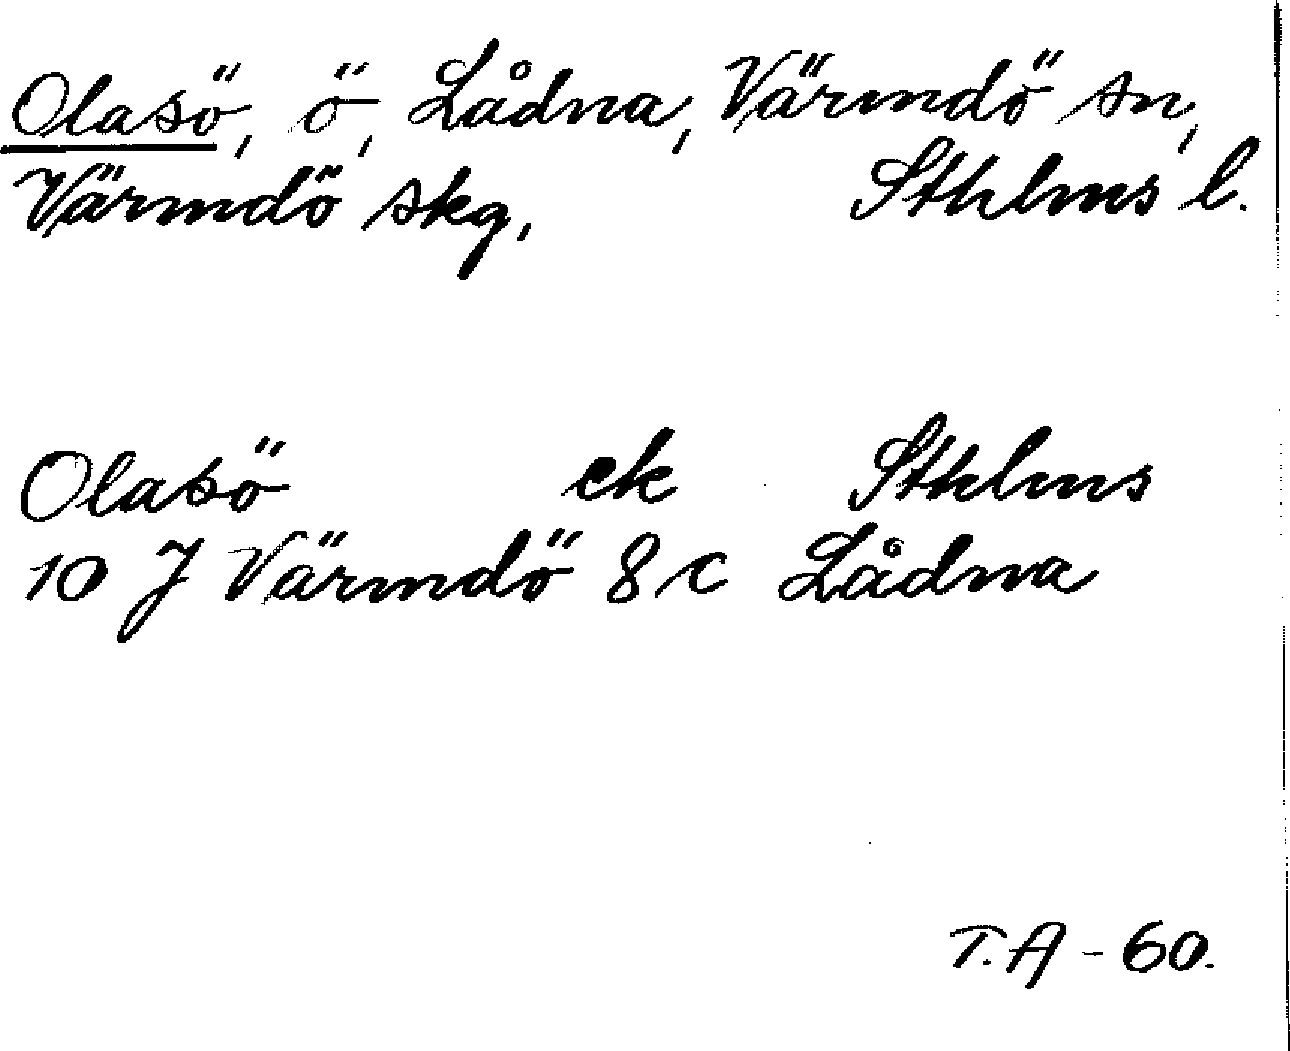 Olasö, ö, Lådna, Värmdö sn,
Värmdö skg, Sthlms l.
Olasö ek Sthlms
10 J Värmdö 8 c Lådna
T.A - 60.